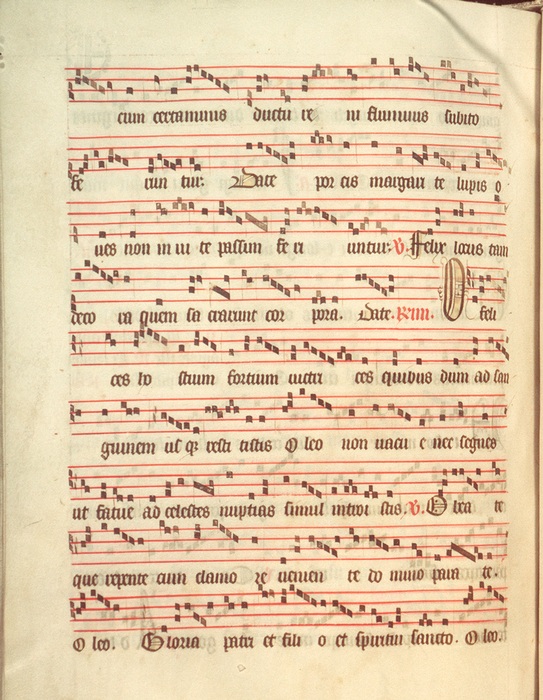 cum certaminis ductu re ni fluminis subito
fe run tur. Date por cis margari te lupis o
ues non in ui te passum fe ri untur. V. Felix locus tam
deco ra quem sa crarunt cor pora. Date. R. O feli
ces lo tium fortium uictri ces quibus dum ad san
guinem us q3 testis O leo non uacu e nec segnes
ut fatue ad celestes nuptias simul introi stis. V. O bea te
que repente cum clamo re uenien te do mino para te.
O leo. Gloria patri et fili o et spiritui sancto. O leo.